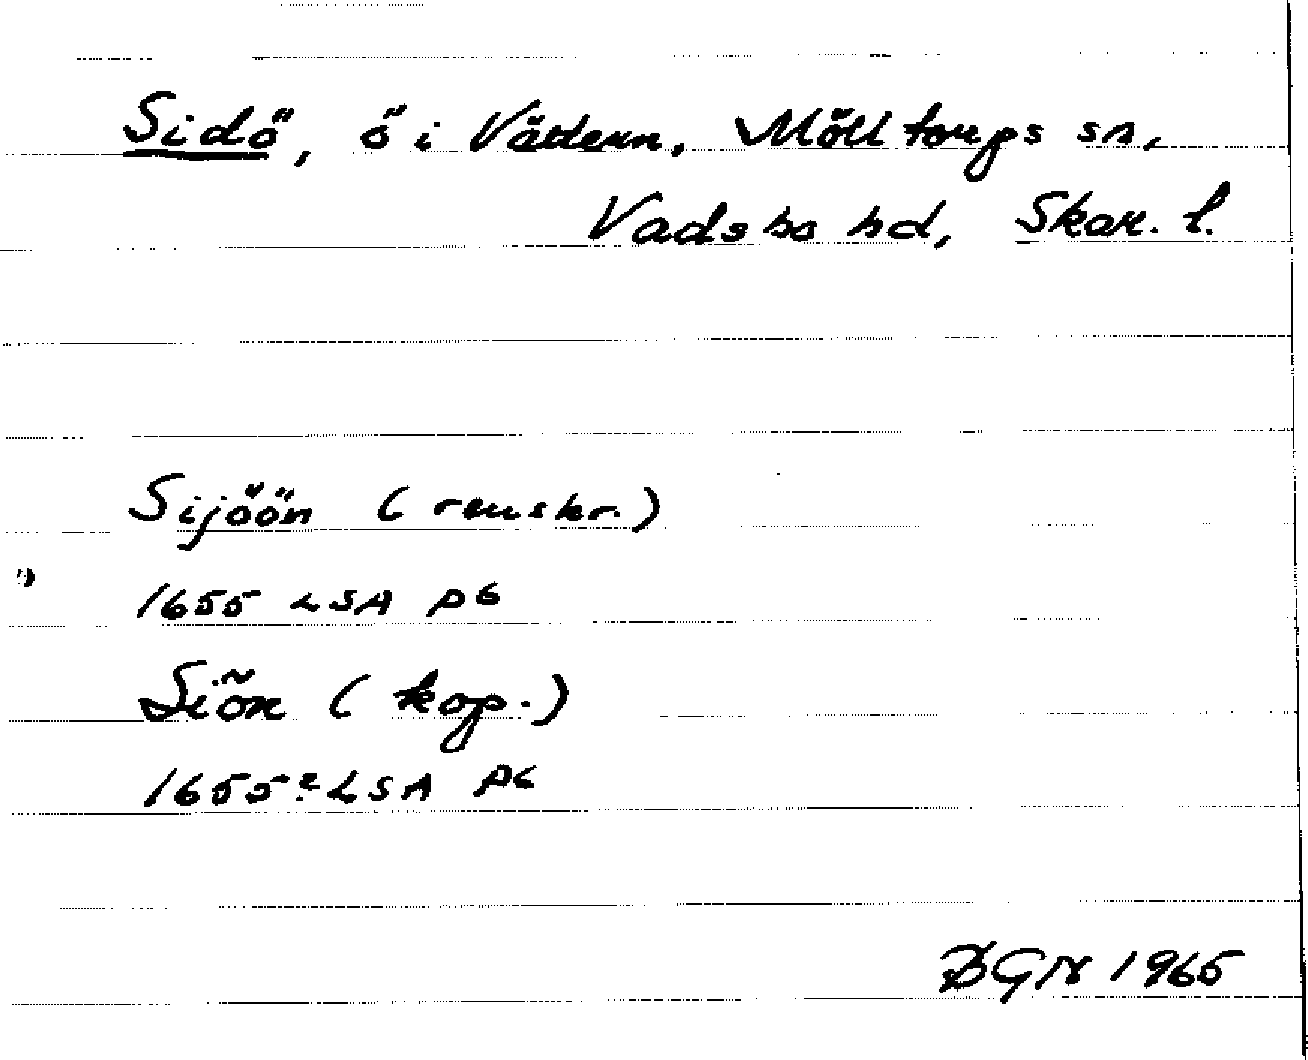 Sidö, ö i Vättern, Mölltorps sn,
Vadsbo hd, Skar. l.
Sijöön (renskr.)
1655 LSA P6
Siõn (kop.)
1655? LSA P6
BGN 1965